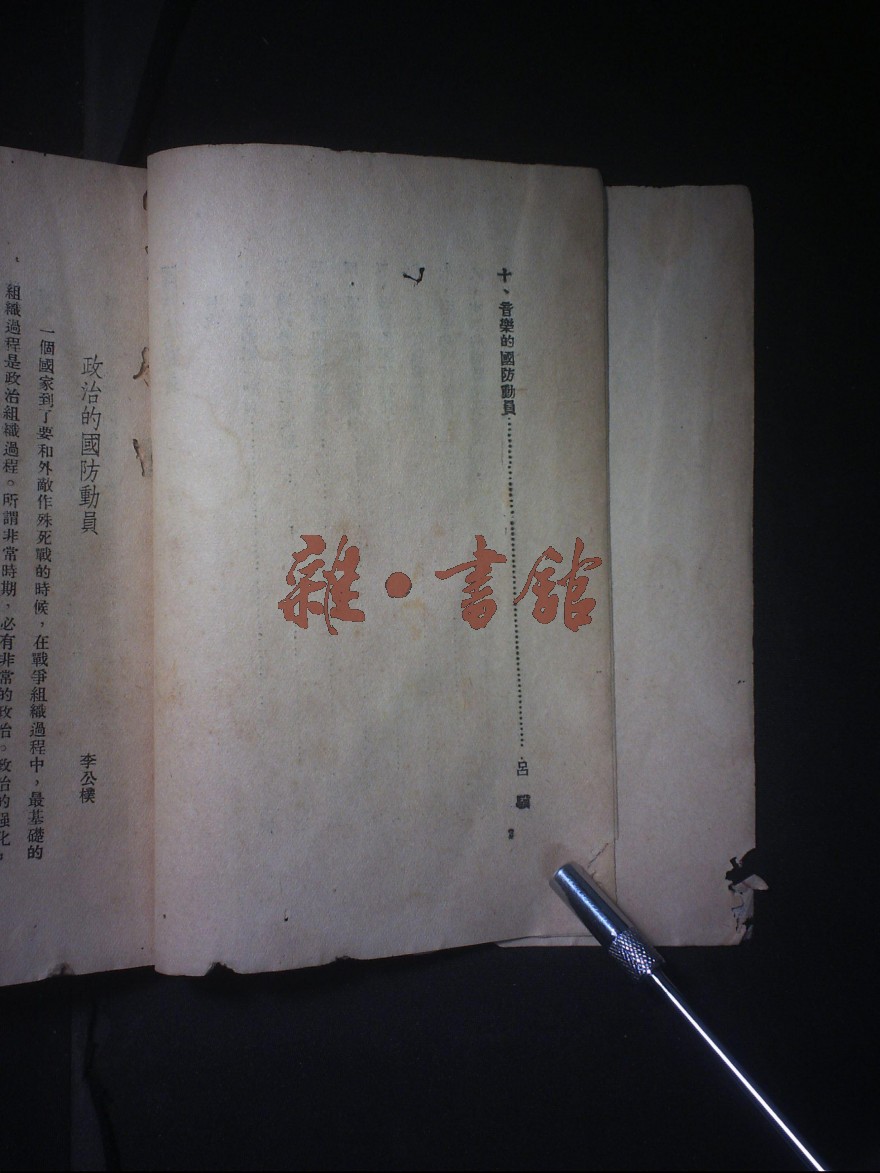 十、音樂的國防動員……………………………………呂驥
雜•書館
政治的國防動員
李公樸
一個國家到了要和外敵作殊死戰的時候，在戰爭組織過程中，最基礎的
組織過程是政治組織過程。所謂非常時期，必有非常的政治。政治的强化，